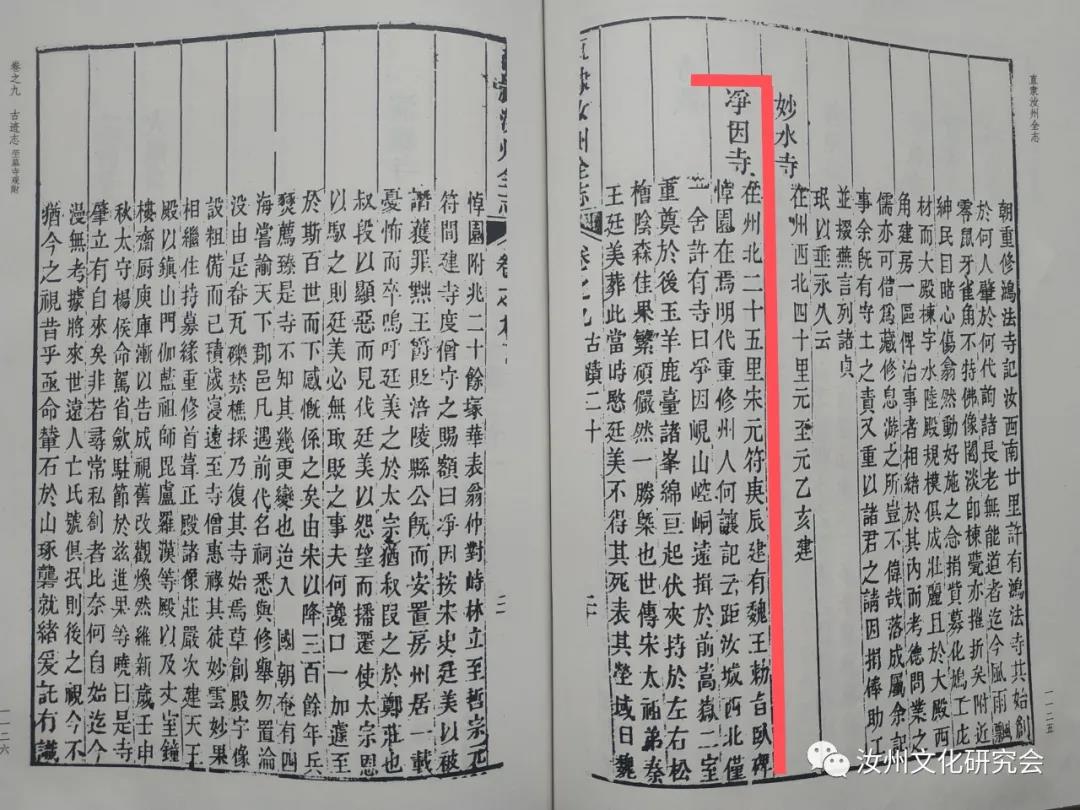 直隶汝州全志
朝重修鴻法寺記汝西南廿里許有鴻法寺其始創
於何人肇於何代詢諸長老無能道者迄今風雨飄
零鼠牙雀角不特佛像闇淡印棟甍亦摧折矣附近
紳民目睹心傷翕然動好施之念捐貲募化鳩工庀
材而大殿棟宇水陸殿規模俱成壯麗且於大殿西
角建房一區俾治事者相緒於其內而考德問業之
儒亦可借爲藏修息游之所豈不偉哉落成屬余記
事余旣有守土之責又重以諸君之請因捐俸助工
並掇蕪言列諸貞
珉以垂永久云
妙水寺
在州西北四十里元至元乙亥建
凈因寺
在州北二十五里宋元符庚辰建有魏王勅旨臥碑
悼園在焉明代重修州人何讓記云距汝城西北僅
一舍許有寺曰凈因峴山崆峒遠揖於前嵩嶽二室
重奠於後玉羊鹿臺諸峯綿亘起伏夾持於左右松
檜陰森佳果繁碩儼然一勝槩也世傳宋太祖弟秦
王廷美葬此當時愍廷美不得其死表其塋域曰魏
直隸汝州全志
卷之九
古蹟二十
一一二五
卷之九 古迹志 茔墓寺观附
悼園附兆二十餘塚華表翁仲對峙林立至哲宗元
符間建寺度僧守之賜額曰凈因按宋史廷美以被
譖獲罪黜王爵貶涪陵縣公旣而安置房州居一載
憂怖而卒嗚呼廷美之於太宗猶叔段之於鄭莊也
叔段以顯惡而見伐廷美以怨望而播遷使太宗思
以馭之則廷美必無取貶之事夫何讒口一加遽至
於斯百世而下感慨係之矣由宋以降三百餘年兵
燹薦臻是寺不知其幾更變也迨入　國朝奄有四
海嘗諭天下郡邑凡遇前代名祠悉與修舉勿置淪
没由是畚瓦礫禁樵採乃復其寺始焉草創殿宇像
設粗備而已積歲寖遠至寺僧惠祿其徒妙雲妙果
相繼住持募緣重修首葺正殿諸像莊嚴次建天王
殿以鎮山門伽藍祖師毘盧羅漢等殿以及丈室鐘
樓齋厨庾庫漸以告成視舊改觀煥然維新歲壬申
秋太守楊侯命駕省歛駐節於兹進果等曉曰是寺
肇立有自來矣非若尋常私創者比奈何自始迄今
漫無考據將來世遠人亡氏號俱泯則後之視今不
猶今之視昔乎亟命輦石於山琢礱就緒爰託有識
一一二六
汝州文化研究会